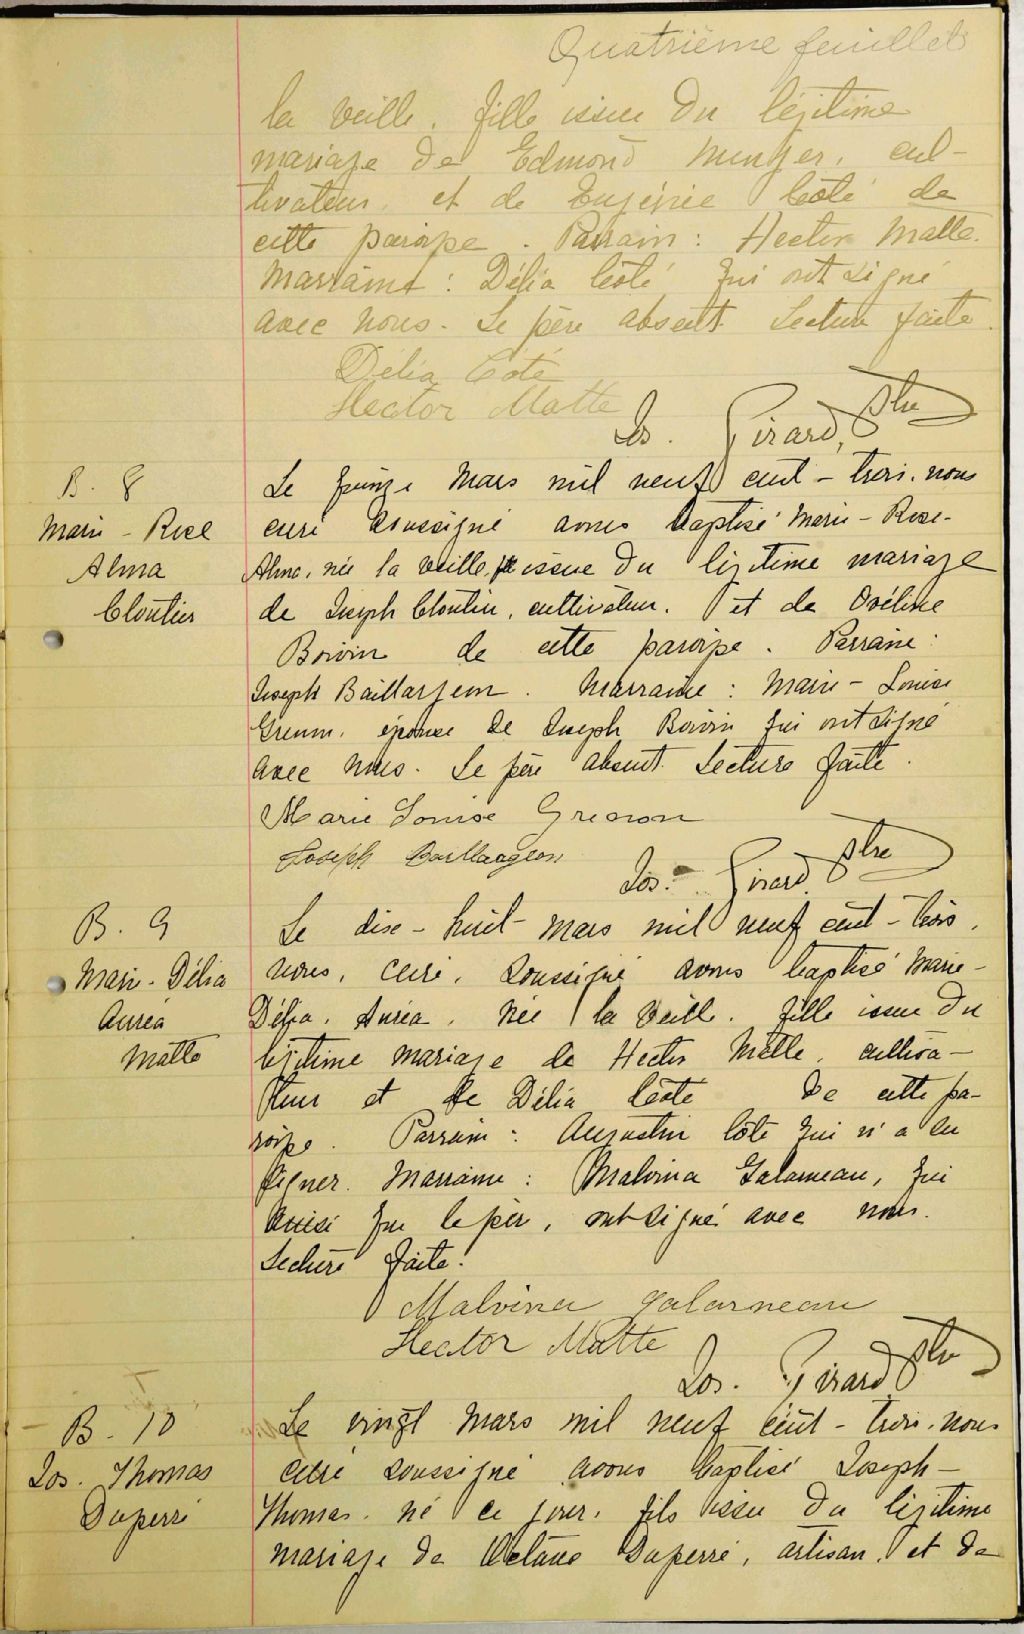 Quatrième feuillet
la veille. fille issue du légitime
mariage de Edmond Munger, cul-
tivateur, et de Eugénie Côté de
cette paroisse. Parrain: Hector Matte.
Marraine: Délia Côté qui ont signé
avec nous. Le père absent. Lecture faite.
Délia Côté
Hector Matte
Jos. Girard, Ptre
B. 8
Marie-Rose
Alma
Cloutier
Le quinze Mars mil neuf cent-trois, nous
curé soussigné avons baptisé Marie-Rose-
Alma, née la veille, issue du légitime mariage
de Joseph Cloutier, cultivateur, et de Ovéline
Boivin de cette paroisse. Parrain:
Joseph Baillargeon. Marraine: Marie-Louise
Grenon, épouse de Joseph Boivin qui ont signé
avec nous. Le père absent. Lecture faite.
Marie Louise Grenon
Joseph Baillargeon
Jos. Girard Ptre
B. 9
Marie-Délia
Auréa
Matte
Le dix-huit Mars mil neuf cent-trois,
nous, curé, soussigné avons baptisé Marie-
Délia, Auréa, née la veille, fille issue du
légitime mariage de Hector Matte, cultiva-
teur et de Délia Côté de cette pa-
roisse. Parrain: Augustin Côté qui n'a su
signer. Marraine: Malvina Galarneau, qui
ainsi que le père, ont signé avec nous.
Lecture faite.
Malvina Galarneau
Hector Matte
Jos. Girard Ptre
B. 10
Jos. Thomas
Duperré
Le vingt Mars mil neuf cent-trois, nous
curé soussigné avons baptisé Joseph-
Thomas, né ce jour, fils issu du légitime
mariage de Octave Duperré, artisan, et de